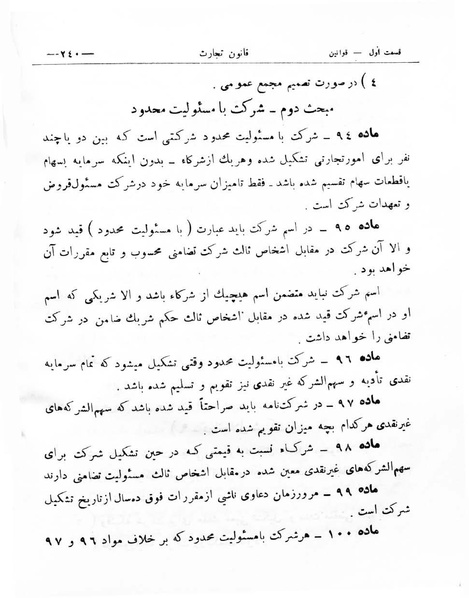 قسمت اول — قوانین    قانون تجارت    —۲۴۰—
۴ ) در صورت تصمیم مجمع عمومی .
مبحث دوم - شرکت با مسئولیت محدود
ماده ۹۴ - شرکت با مسئولیت محدود شرکتی است که بین دو یاچند
نفر برای امورتجارتی تشکیل شده وهریك ازشرکاء - بدون اینکه سرمایه بسهام
یاقطعات سهام تقسیم شده باشد - فقط تامیزان سرمایه خود درشرکت مسئول‌قروض
و تعهدات شرکت است .
ماده ۹۵ - در اسم شرکت باید عبارت ( با مسئولیت محدود ) قید شود
و الا آن شرکت در مقابل اشخاص ثالث شرکت تضامنی محسوب و تابع مقررات آن
خواهد بود .
اسم شرکت نباید متضمن اسم هیچیك از شرکاء باشد و الا شریکی که اسم
او در اسم شرکت قید شده در مقابل اشخاص ثالث حکم شریك ضامن در شرکت
تضامنی را خواهد داشت .
ماده ۹۶ - شرکت بامسئولیت محدود وقتی تشکیل میشود که تمام سرمایه
نقدی تأدیه و سهم‌الشرکه غیر نقدی نیز تقویم و تسلیم شده باشد .
ماده ۹۷ - در شرکت‌نامه باید صراحتاً قید شده باشد که سهم‌الشرکه‌های
غیرنقدی هرکدام بچه میزان تقویم شده است .
ماده ۹۸ - شرکاء نسبت به قیمتی که در حین تشکیل شرکت برای
سهم‌الشرکه‌های غیرنقدی معین شده درمقابل اشخاص ثالث مسئولیت تضامنی دارند
ماده ۹۹ - مرورزمان دعاوی ناشی ازمقررات فوق ده‌سال ازتاریخ تشکیل
شرکت است .
ماده ۱۰۰ - هرشرکت بامسئولیت محدود که بر خلاف مواد ۹۶ و ۹۷